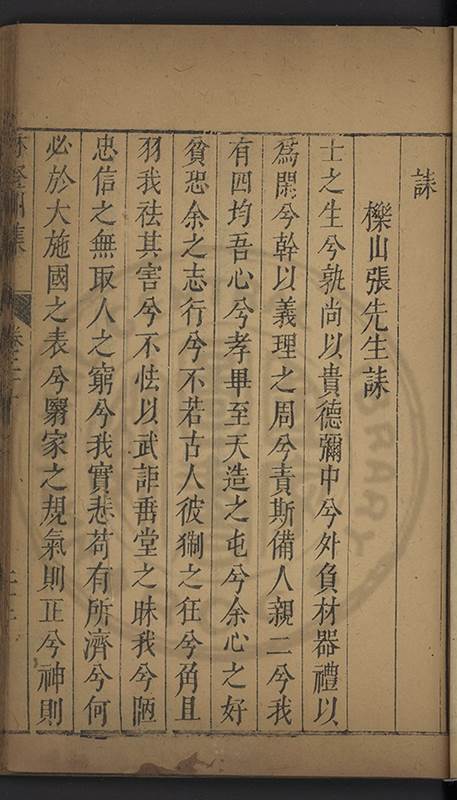 誄
櫟山張先生誄
士之生兮孰尚以貴德彌中兮外負材器禮以
為閑兮幹以義理之周兮責斯備人親二兮我
有四均吾心兮孝畢至天造之屯兮余心之好
貧恐余之志行兮不若古人彼猘之狂兮角且
羽我祛其害兮不怯以武詎垂堂之昧我兮陋
忠信之無取人之窮兮我實悲苟有所濟兮何
必於大施國之表兮家之規氣則正兮神則
集